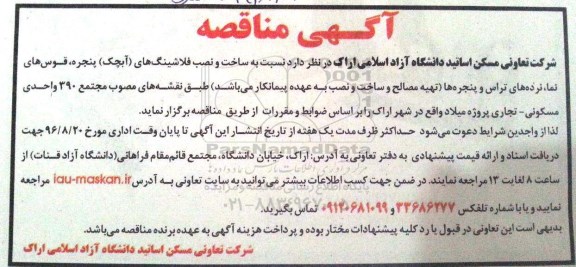 آگهی مناقصه
شرکت تعاونی مسکن اساتید دانشگاه آزاد اسلامی اراک در نظر دارد نسبت به ساخت و نصب فلاشینگ‌های (آبچک) پنجره، قوس‌های
نما، نرده‌های تراس و پنجره‌ها (تهیه مصالح و ساخت و نصب به عهده پیمانکار می‌باشد) طبق نقشه‌های مصوب مجتمع ۳۹۰ واحدی
مسکونی- تجاری پروژه میلاد واقع در شهر اراک رابر اساس ضوابط و مقررات از طریق مناقصه برگزار نماید.
لذا از واجدین شرایط دعوت می‌شود حداکثر ظرف مدت یک هفته از تاریخ انتشار این آگهی تا پایان وقت اداری مورخ ۹۶/۸/۲۰ جهت
دریافت اسناد و ارائه قیمت پیشنهادی به دفتر تعاونی به آدرس: اراک، خیابان دانشگاه، مجتمع قائم‌مقام فراهانی(دانشگاه آزاد قنات) از
ساعت ۸ لغایت ۱۳ مراجعه نمایند. در ضمن جهت کسب اطلاعات بیشتر می توانید به سایت تعاونی به آدرس iau-maskan.ir مراجعه
نمایید و یا با شماره تلفکس ۳۳۶۸۶۲۷۷ و ۰۹۱۲۰۶۸۱۰۹۹ تماس بگیرید.
بدیهی است این تعاونی در قبول یا رد کلیه پیشنهادات مختار بوده و پرداخت هزینه آگهی به عهده برنده مناقصه می‌باشد.
شرکت تعاونی مسکن اساتید دانشگاه آزاد اسلامی اراک
ParsNamadData
۰۲۱-۸۸۳۴۹۶۷۰